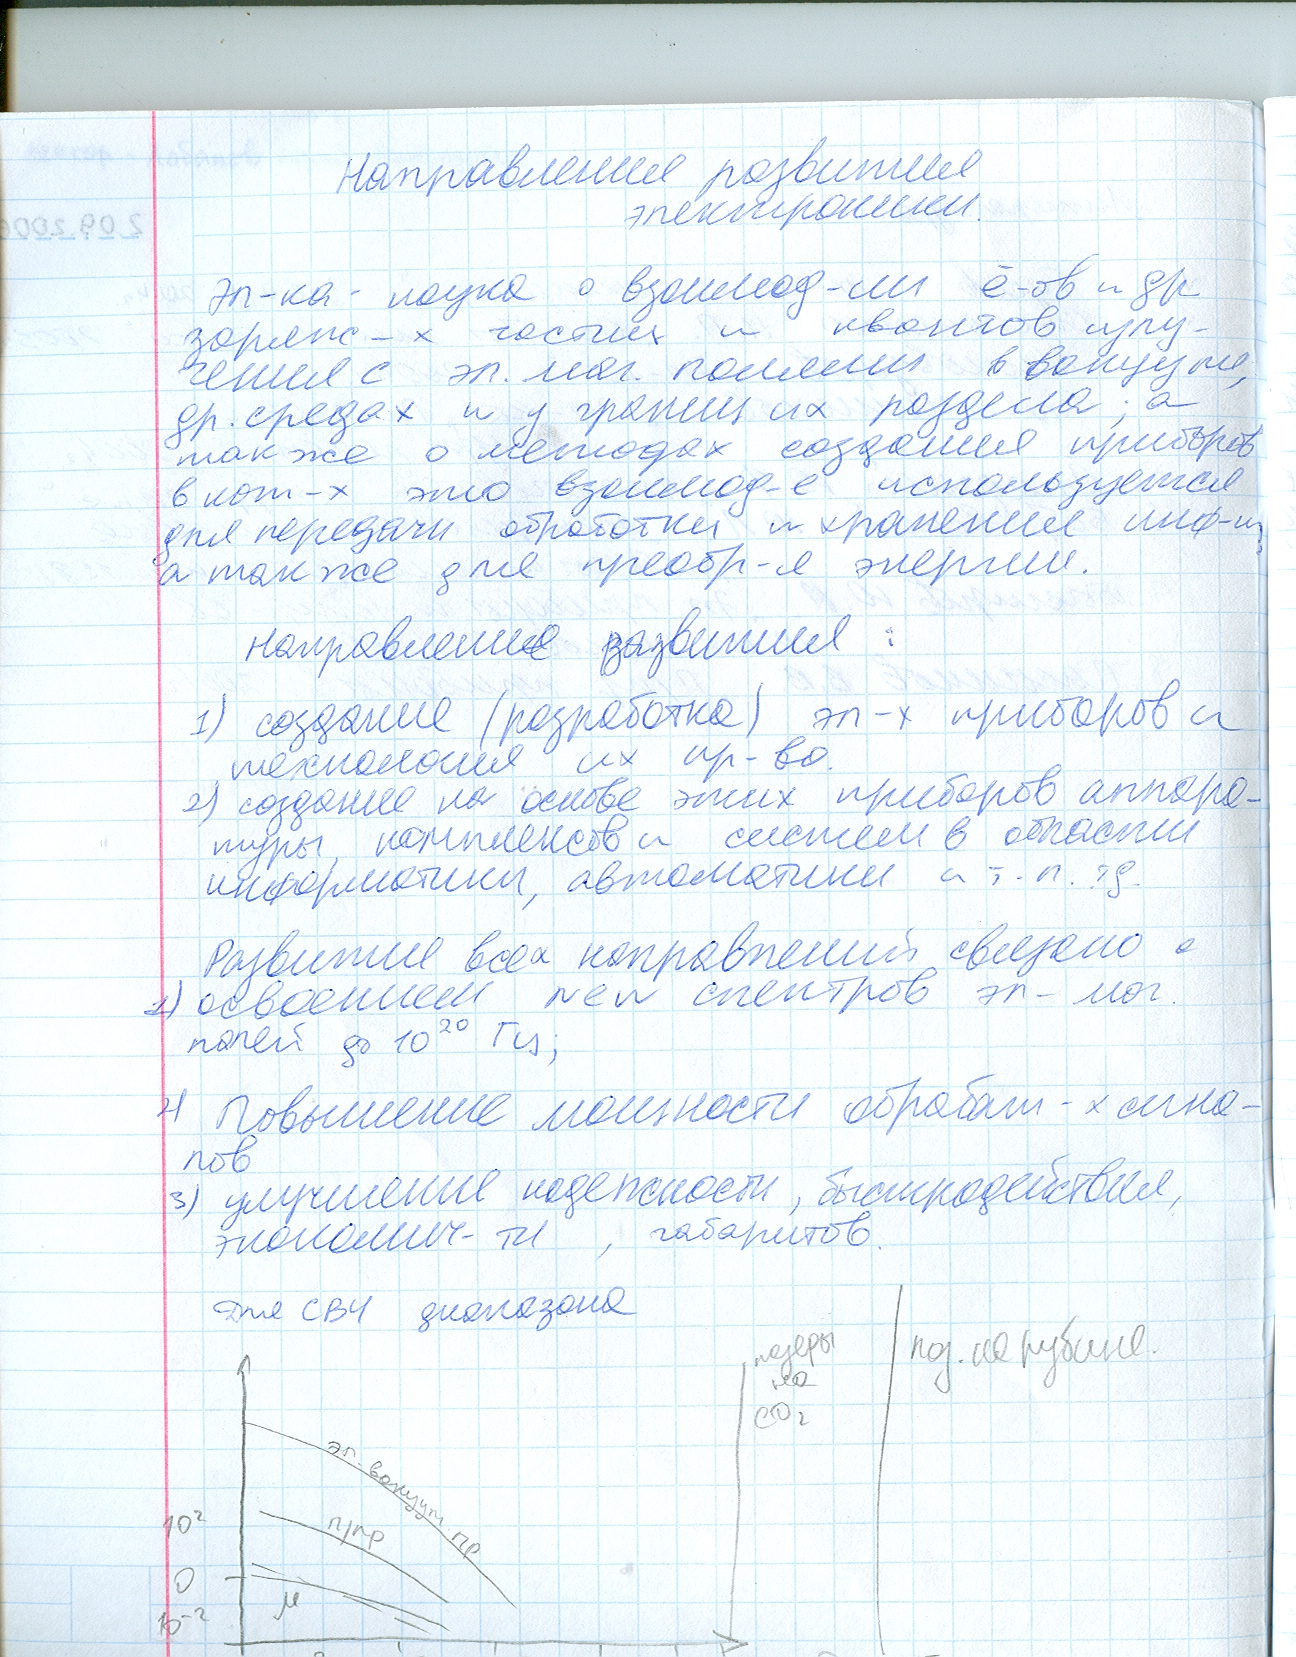 Направления развития
электроники.
Эл-ка - наука о взаимод-ии ē-ов и др
заряж-х частиц и квантов излу-
чения с эл. маг. полями в вакууме,
др. средах и у границ их раздела; а
также о методах создания приборов
в кот-х это взаимод-е используется
для передачи обработки и хранения инф-и,
а также для преобр-я энергии.
Направление развития :
1) создание (разработка) эл-х приборов и
технология их пр-ва.
2) создание на основе этих приборов аппара-
туры, комплексов и систем в области
информатики, автоматики и т.п. тд.
Развитие всех направлений связано с
1) освоением new спектров эл-маг.
полей до 10²⁰ Гц;
2) Повышение мощности обрабат-х сигна-
лов
3) улучшение надежности, быстродействия,
экономич-ти , габаритов.
Для СВЧ диапазона
лазеры
на
CO₂
лаз. на рубине.
эл. вакуум пр
10²
п/пр
0
М
10⁻²